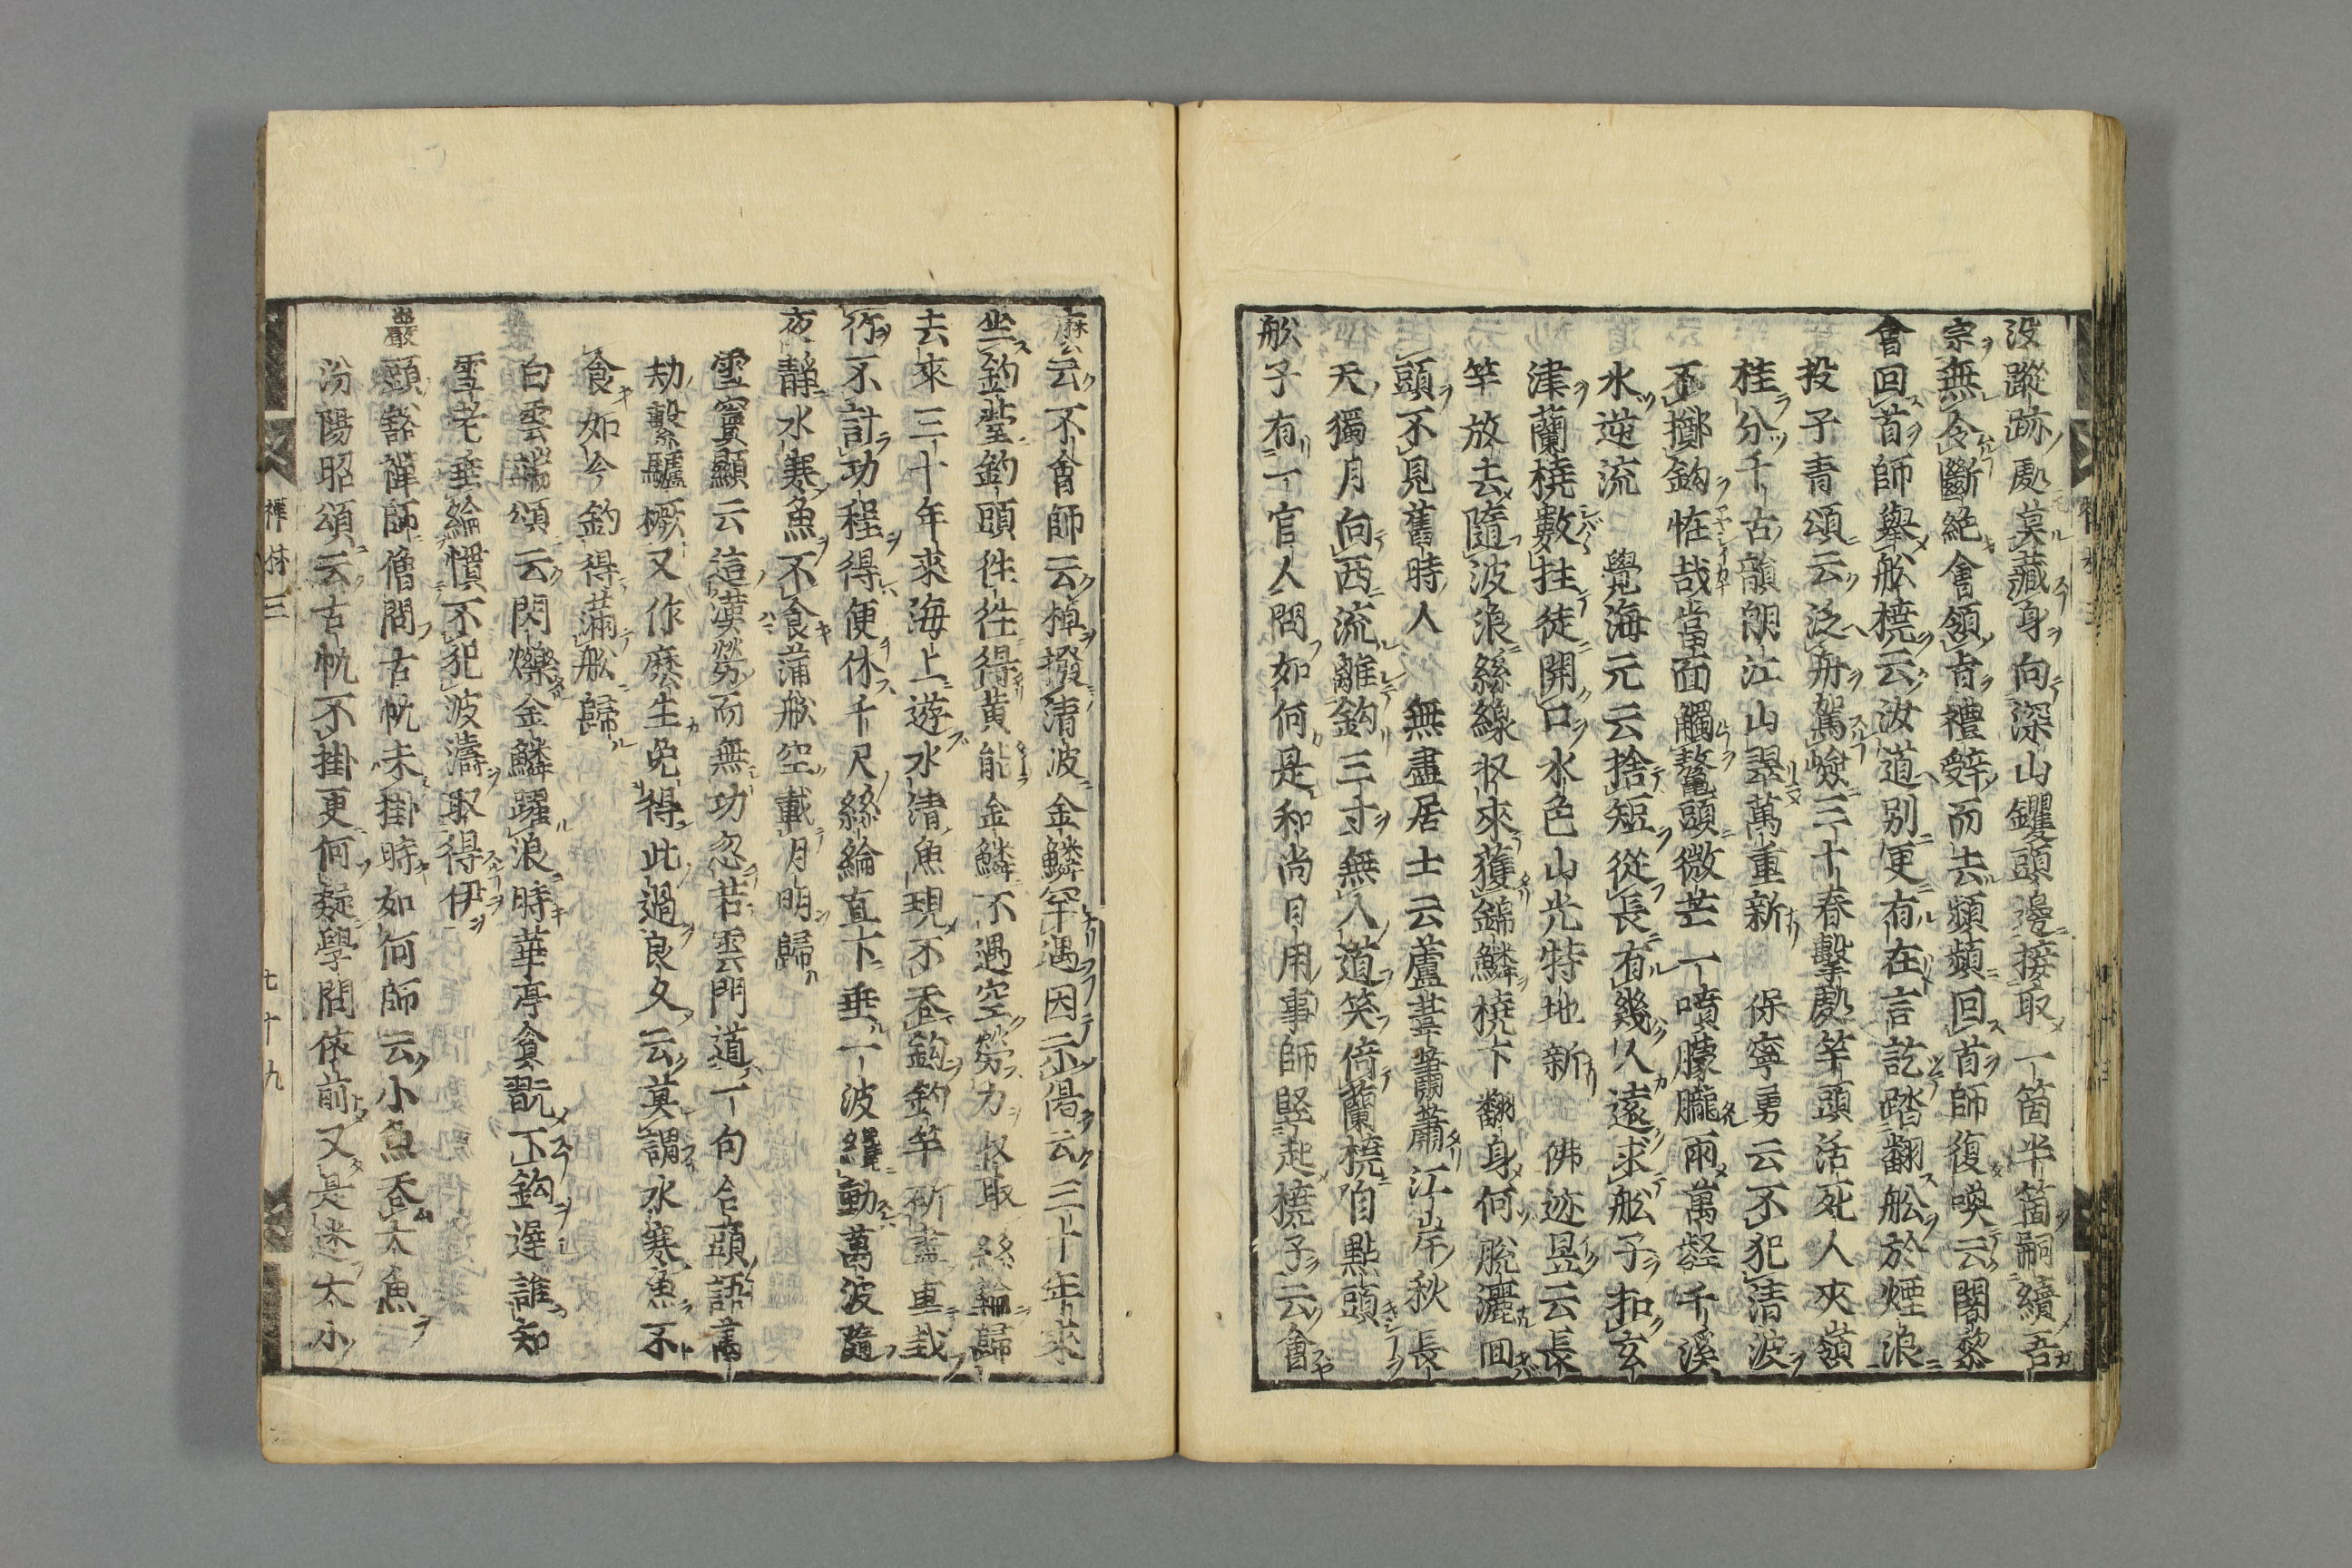 没蹤跡處莫藏身向深山钁頭邊接取一箇半箇嗣續吾
宗無令斷絶會領旨禮辤而去頻頻回首師復喚云闍黎
會回首師擧舩橈云汝道別更有在言訖踏翻舩於煙浪
投子青頌云泛舟駕嶮三十春擊處竿頭活死人夾嶺
桂分千古韻朗江山翠萬重新　保寧勇云不犯清波
不擲鈎恠哉當面觸鼇頭微芒一噴朦朧雨萬壑千溪
水逆流　覺海元云捨短從長有幾人遠求舩子扣玄
津蘭橈數拄徒開口水色山光特地新　佛迹昱云長
竿放去隨波浪絲線収來獲錦鱗橈下翻身何脱灑回
頭不見舊時人　無盡居士云蘆葦蕭蕭江岸秋長
天獨月向西流離鈎三寸無人道笑倚蘭橈自點頭
舩子有一官人問如何是和尚日用事師竪起橈子云會
麽云不會師云棹撥清波金鱗罕遇因示偈云三十年來
坐釣臺釣頭徃徃得黄能金鱗不遇空勞力収取絲綸歸
去來三十年來海上遊水清魚現不吞鈎釣竿斫盡重栽
竹不計功程得便休千尺絲綸直下垂一波纔動萬波隨
夜靜水寒魚不食蒲舩空載月明歸
雪竇顯云這漢勞而無功忽若雲門道一句合頭語萬
劫繫驢橛又作麽生免得此過良久云莫謂水寒魚不
食如今釣得滿舩歸
白雲端頌云閃爍金鱗躍浪時華亭貪翫下鈎遲誰知
雪老垂綸慣不犯波濤取得伊
巖頭豁禪師僧問古帆未掛時如何師云小魚吞大魚
汾陽昭頌云古帆不掛更何疑學問依前又是迷大小
禪林三
七十九